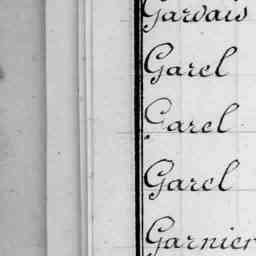 Garvais
Garel
Garel
Garel
Garnier